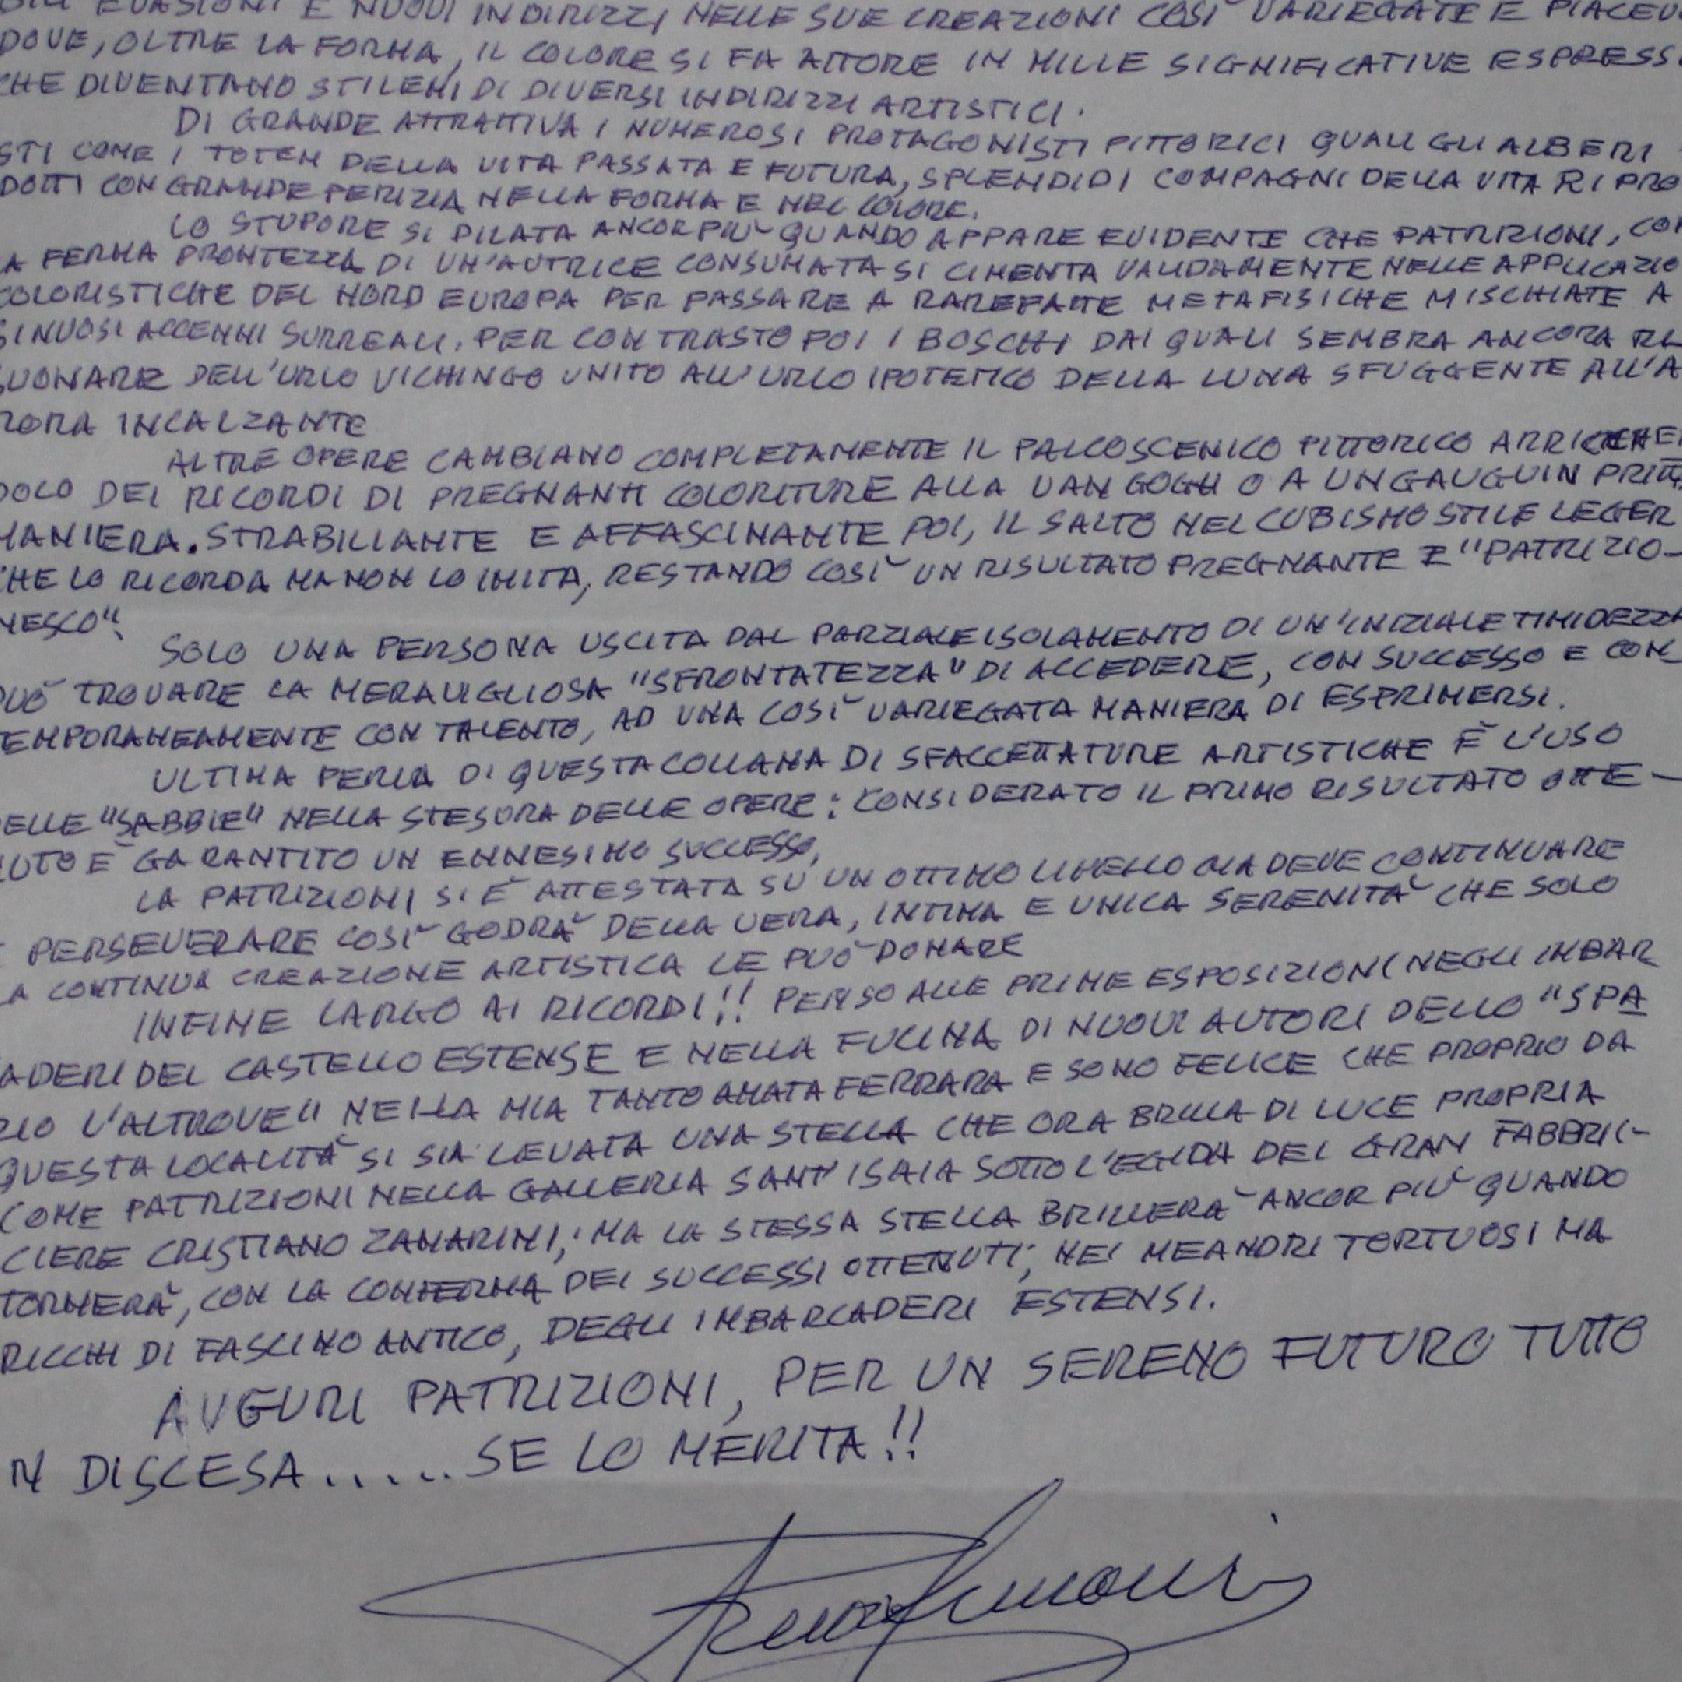 EVASIONI E NUOVI INDIRIZZI NELLE SUE CREAZIONI COSI' VARIEGATE E PIACEV
DOVE, OLTRE LA FORMA, IL COLORE SI FA ATTORE IN MILLE SIGNIFICATIVE ESPRESS
CHE DIVENTANO STILEMI DI DIVERSI INDIRIZZI ARTISTICI.
DI GRANDE ATTRATTIVA I NUMEROSI PROTAGONISTI PITTORICI QUALI GLI ALBERI
STI COME I TOTEM DELLA VITA PASSATA E FUTURA, SPLENDIDI COMPAGNI DELLA VITA RIPRO
DOTTI CON GRANDE PERIZIA NELLA FORMA E NEL COLORE.
LO STUPORE SI DILATA ANCOR PIU' QUANDO APPARE EVIDENTE CHE PATRIZIONI, CON
A FERMA PRONTEZZA DI UN'AUTRICE CONSUMATA SI CIMENTA VALIDAMENTE NELLE APPLICAZIO
COLORISTICHE DEL NORD EUROPA PER PASSARE A RAREFATTE METAFISICHE MISCHIATE A
SINUOSI ACCENNI SURREALI. PER CONTRASTO POI I BOSCHI DAI QUALI SEMBRA ANCORA RI
SUONARE DELL'URLO VICHINGO UNITO ALL'URLO IPOTETICO DELLA LUNA SFUGGENTE ALL'A
RORA INCALZANTE
ALTRE OPERE CAMBIANO COMPLETAMENTE IL PALCOSCENICO PITTORICO ARRICCHEN
DOLO DEI RICORDI DI PREGNANTI COLORITURE ALLA VAN GOGH O A UN GAUGUIN PRIMA
MANIERA. STRABILIANTE E AFFASCINANTE POI, IL SALTO NEL CUBISMO STILE LEGER
CHE LO RICORDA MA NON LO IMITA, RESTANDO COSI' UN RISULTATO PREGNANTE E "PATRIZIO-
NESCO".
SOLO UNA PERSONA USCITA DAL PARZIALE ISOLAMENTO DI UN'INIZIALE TIMIDEZZA
PUO' TROVARE LA MERAVIGLIOSA "SFRONTATEZZA" DI ACCEDERE, CON SUCCESSO E CON_
TEMPORANEAMENTE CON TALENTO, AD UNA COSI' VARIEGATA MANIERA DI ESPRIMERSI.
ULTIMA PERLA DI QUESTA COLLANA DI SFACCETTATURE ARTISTICHE È L'USO
DELLE "SABBIE" NELLA STESURA DELLE OPERE: CONSIDERATO IL PRIMO RISULTATO OTTE-
NUTO E' GARANTITO UN ENNESIMO SUCCESSO,
LA PATRIZIONI SI E' ATTESTATA SU UN OTTIMO LIVELLO MA DEVE CONTINUARE
E PERSEVERARE COSI' GODRA' DELLA VERA, INTIMA E UNICA SERENITA' CHE SOLO
LA CONTINUA CREAZIONE ARTISTICA LE PUO' DONARE
INFINE LARGO AI RICORDI!! PENSO ALLE PRIME ESPOSIZIONI NEGLI IMBAR
CADERI DEL CASTELLO ESTENSE E NELLA FUCINA DI NUOVI AUTORI DELLO "SPA
ZIO L'ALTROVE" NELLA MIA TANTO AMATA FERRARA E SONO FELICE CHE PROPRIO DA
QUESTA LOCALITA' SI SIA LEVATA UNA STELLA CHE ORA BRILLA DI LUCE PROPRIA
COME PATRIZIONI NELLA GALLERIA SANT'ISAIA SOTTO L'EGIDA DEL GRAN FABBRI-
CIERE CRISTIANO ZANARINI; MA LA STESSA STELLA BRILLERA' ANCOR PIU' QUANDO
TORNERA', CON LA CONFERMA DEI SUCCESSI OTTENUTI, NEI MEANDRI TORTUOSI MA
RICCHI DI FASCINO ANTICO, DEGLI IMBARCADERI ESTENSI.
AUGURI PATRIZIONI, PER UN SERENO FUTURO TUTTO
IN DISCESA..... SE LO MERITA!!